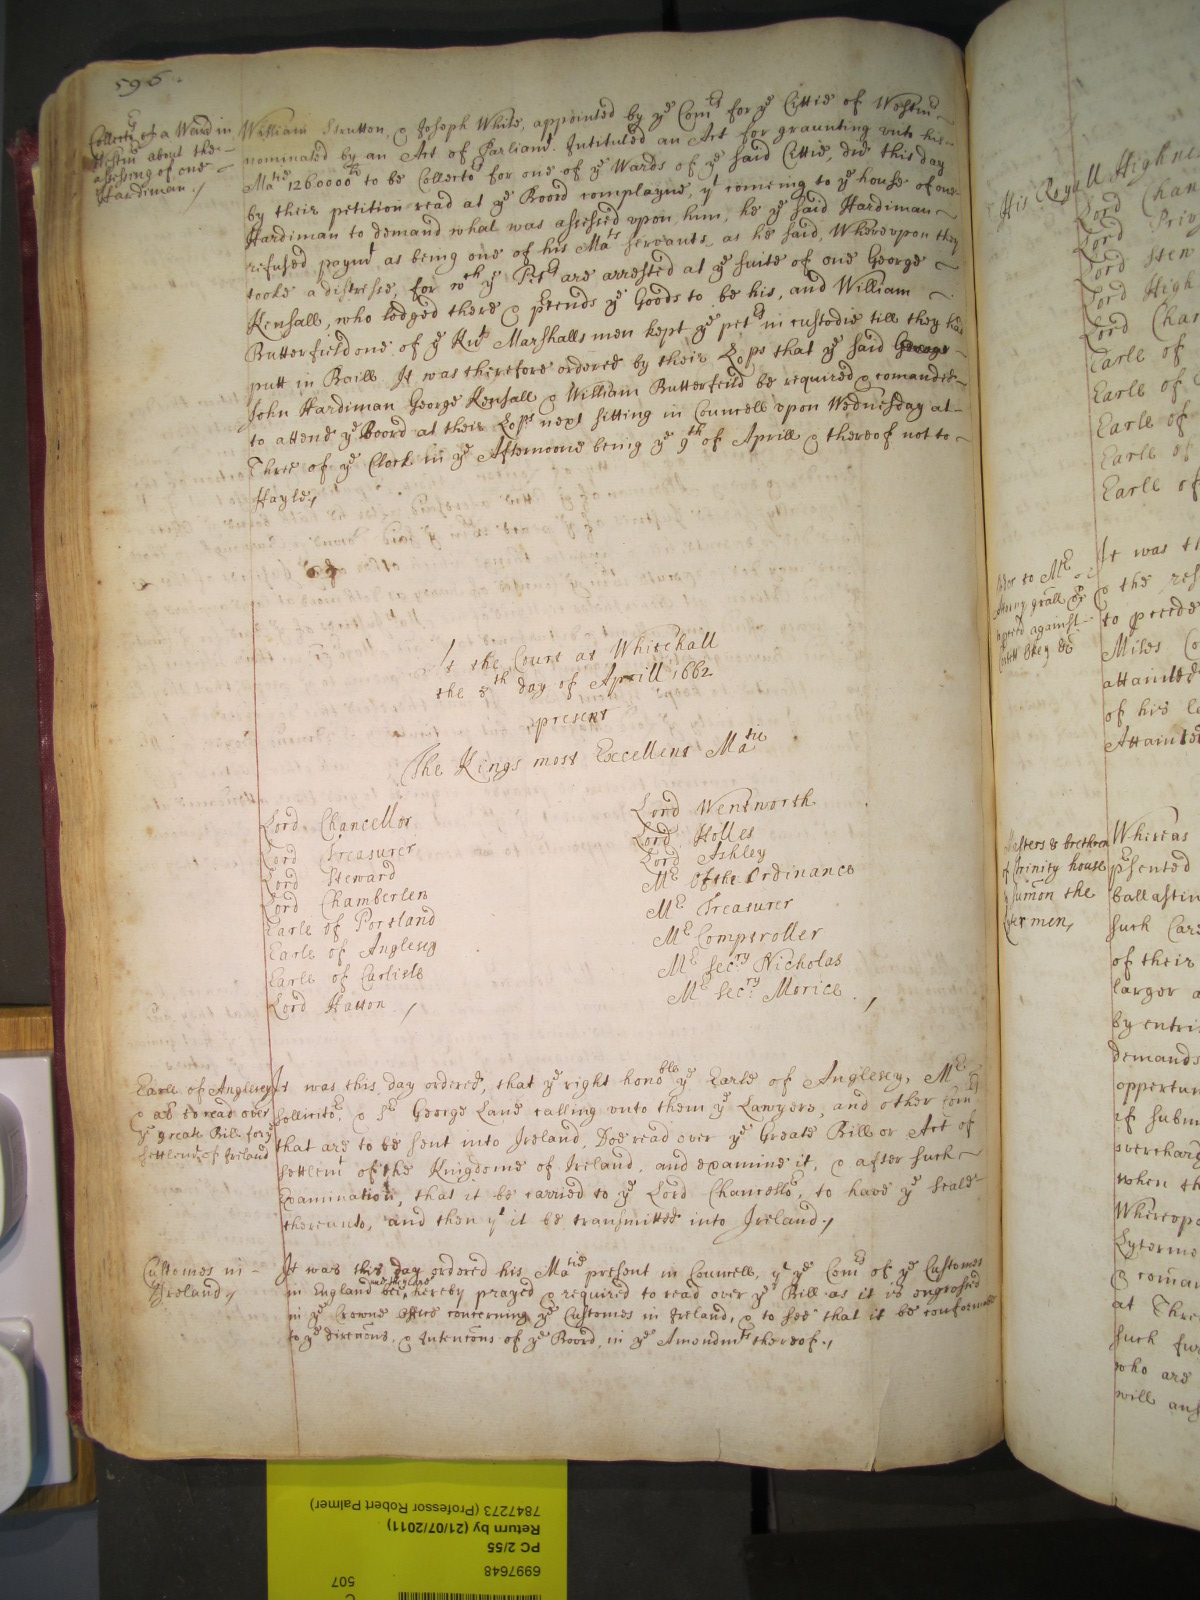 596.
Collectrs of a Ward in
Westmr about the
assessing of one
Hardiman /
William Strutton, & Joseph White, appointed by ye Comrs for ye Cittie of Westmr
nominated by an Act of Parliamt. Intituled an Act for graunting vnto his
Matie 1260000li to be Collectrs for one of ye Wards of ye said Cittie, did this day
by their petition read at ye Boord complayne, yt comeing to ye house of one
Hardiman to demand what was assessed vpon him, he ye said Hardiman
refused paymt as being one of his Mats servants, as he said, Wherevpon they
tooke a distresse, for wch ye Petrs are arrested at ye suite of one George
Kensall, who lodged there & ptends ye Goods to be his, and William
Butterfield one of ye Kts Marshalls men kept ye petrs in custodie till they had
putt in Baill. It was therefore ordered by their Lopps that ye said George
John Hardiman George Kensall & William Butterfeild be required & comanded
to attend ye Boord at their Lopps next sitting in Councell vpon Wednesday at
Three of ye Clock in ye Afternoone being ye 9th of Aprill & thereof not to
Hayle,
At the Court at Whitehall
the 8th day of Aprill 1662
present
The Kings most Excellent Matie
Lord Chancellor
Lord Treasurer
Lord Steward
Lord Chamberlen
Earle of Portland
Earle of Anglesey
Earle of Carlisle
Lord Hatton /
Lord Wentworth
Lord Holles
Lord Ashley
Mr of the Ordinance
Mr Treasurer
Mr Comptroller
Mr Secry Nicholas
Mr Secry Morice /
Earle of Anglesey
& al to read over
ye greate Bill for ye
settlemt of Ireland
It was this day ordered, that ye right honoble ye Earle of Anglesey, Mr
sollicitor, & Sr George Lane calling vnto them ye Lawyers, and other Comrs
that are to be sent into Ireland, Doe read over ye Greate Bill or Act of
settlemt of the Kingdome of Ireland, and examine it, & after such
Examination, that it be carried to ye Lord Chancellor, to have ye seale
thereunto, and then yt it be transmitted into Ireland /
Customes in
Ireland /
It was this day ordered his Matie present in Councell, yt ye Comrs of ye Customes
in England bee, and they are hereby prayed & required to read over ye Bill as it is engrossed
in ye Crowne office concerning ye Customes in Ireland, & to see that it be conformable
to ye direcons, & Intencons of ye Boord, in ye Amendmts thereof /
His Royall Highne
Lord Chan
Lord Priv
Lord Stew
Lord High
Lord Cham
Earle of
Earle of
Earle of
Earle of
Earle of
order to Mr
Attorny grall
against
It was th
& the res
to proceed
Miles Co
attainted
of his la
Attainted
Masters & brethren
of Trinity house
to sumon the
Lytermen,
Whereas
psented
ballastin
such Car
of their
larger a
by entri
demands
opportun
if subm
overcharg
when th
Wherevpo
Lyterme
& coman
at Three
such fur
who are
will ans
6997648
PC 2/55
Return by (21/07/2011)
7847273 (Professor Robert Palmer)
507